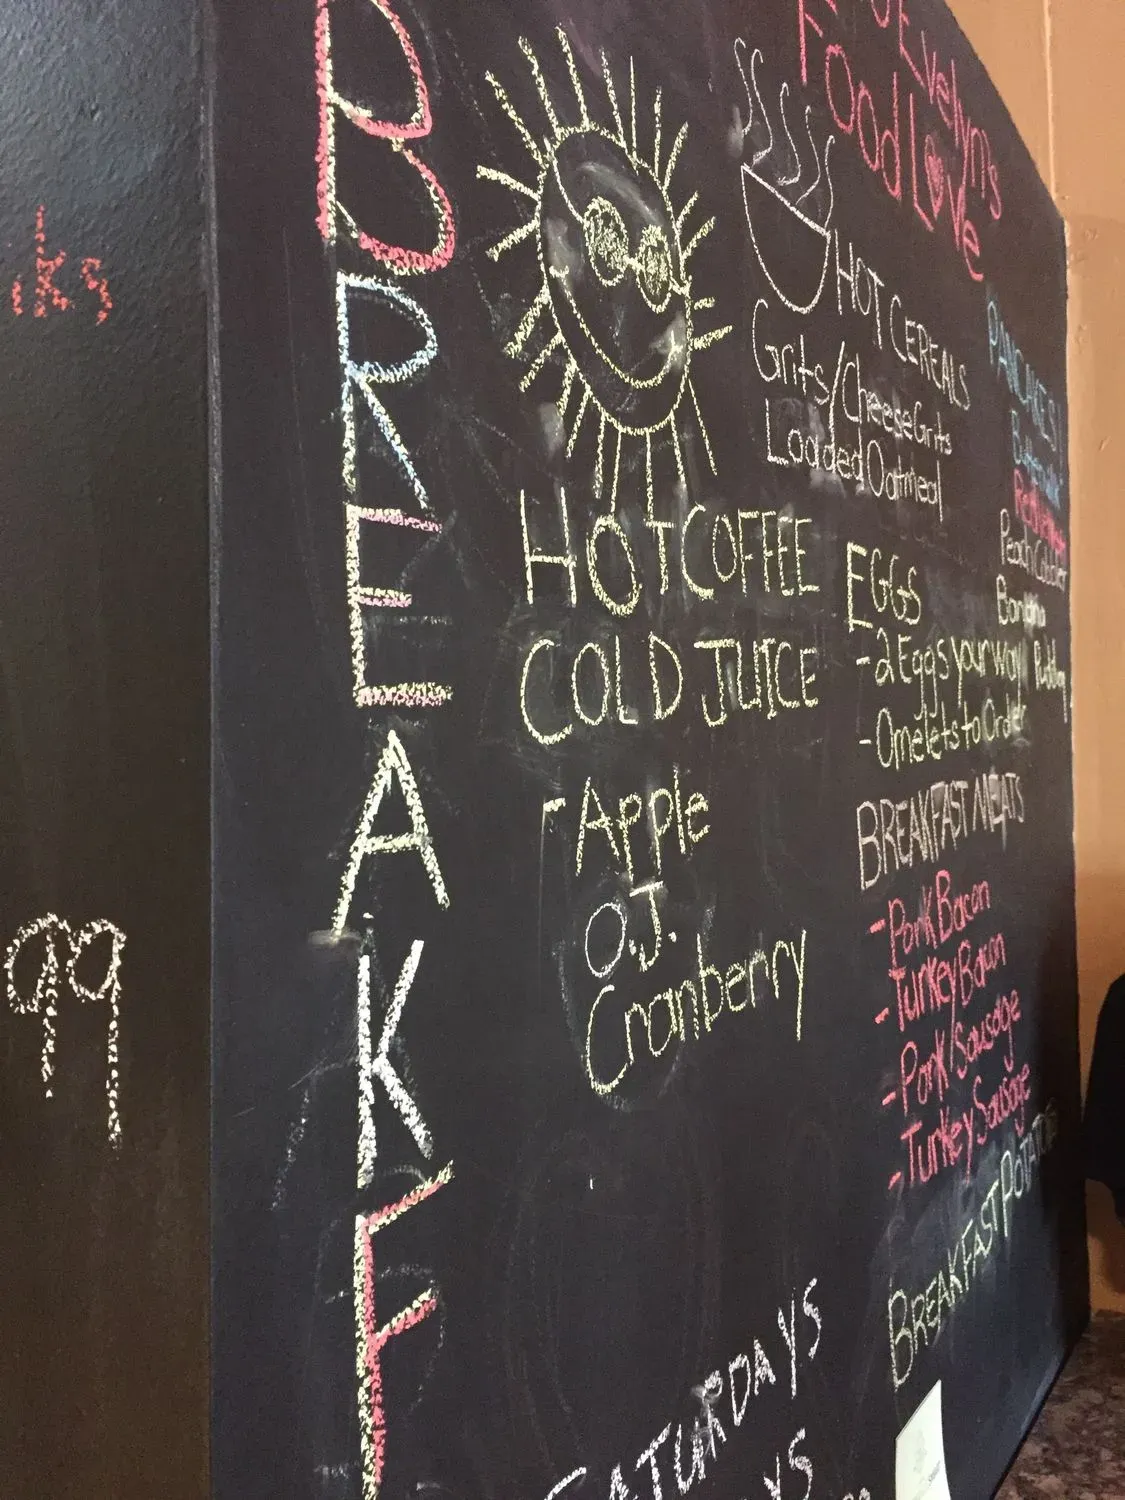 BREAKF
HOT COFFEE
COLD JUICE
- Apple
O.J.
Cranberry
SATURDAYS
Evelyns
Food Love
HOT CEREALS
Grits/Cheese Grits
Loaded Oatmeal
EGGS
- 2 Eggs your way
- Omelets to Order
BREAKFAST MEATS
- Pork Bacon
- Turkey Bacon
- Pork/Sausage
- Turkey Sausage
BREAKFAST POTATOES
PANCAKES!
Peach Cobbler
Banana
Pudding
99